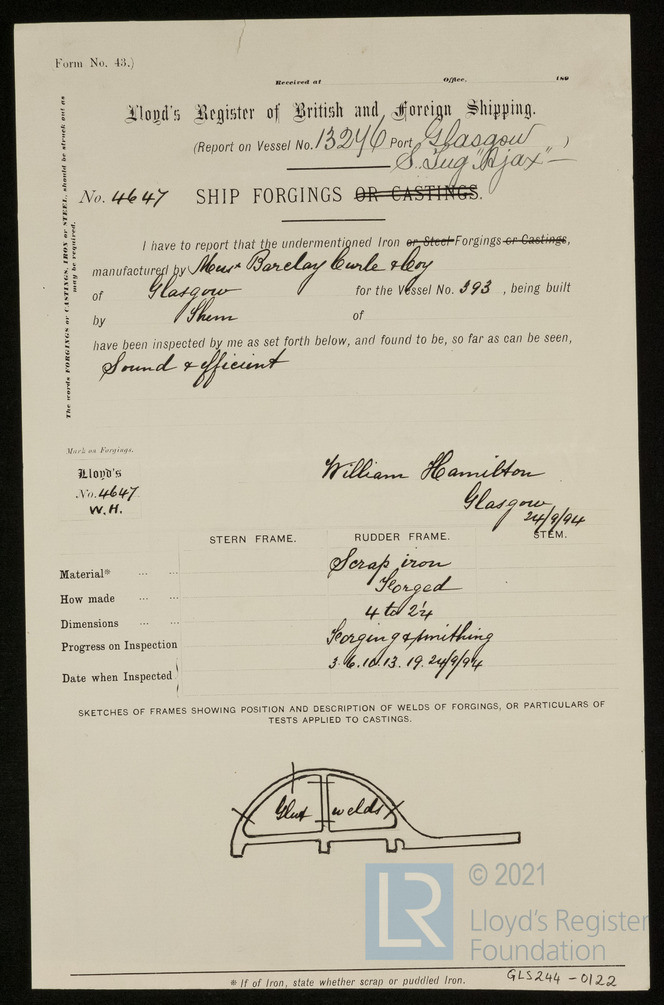 Form No. 43.)
Received at Office, 189
Lloyd's Register of British and Foreign Shipping.
(Report on Vessel No. 13246 Port Glasgow )
S. Tug "Ajax"
No. 4647 SHIP FORGINGS OR CASTINGS.
The words FORGINGS or CASTINGS, IRON or STEEL, should be struck out as
may be required.
I have to report that the undermentioned Iron or Steel Forgings or Castings,
manufactured by Messrs Barclay Curle & Coy
of Glasgow for the Vessel No. 393, being built
by Them of
have been inspected by me as set forth below, and found to be, so far as can be seen,
Sound & efficient
Mark on Forgings.
Lloyd's
No. 4647
W.H.
William Hamilton
Glasgow
24/9/94
STERN FRAME. RUDDER FRAME. STEM.
Material* ... ... Scrap iron
How made ... ... Forged
Dimensions ... ... 4 to 2¼
Progress on Inspection Forging & smithing
Date when Inspected 3. 6. 10. 13. 19. 24/9/94
SKETCHES OF FRAMES SHOWING POSITION AND DESCRIPTION OF WELDS OF FORGINGS, OR PARTICULARS OF
TESTS APPLIED TO CASTINGS.
Glut welds
LR
© 2021
Lloyd's Register
Foundation
* If of Iron, state whether scrap or puddled Iron.
GLS244-0122